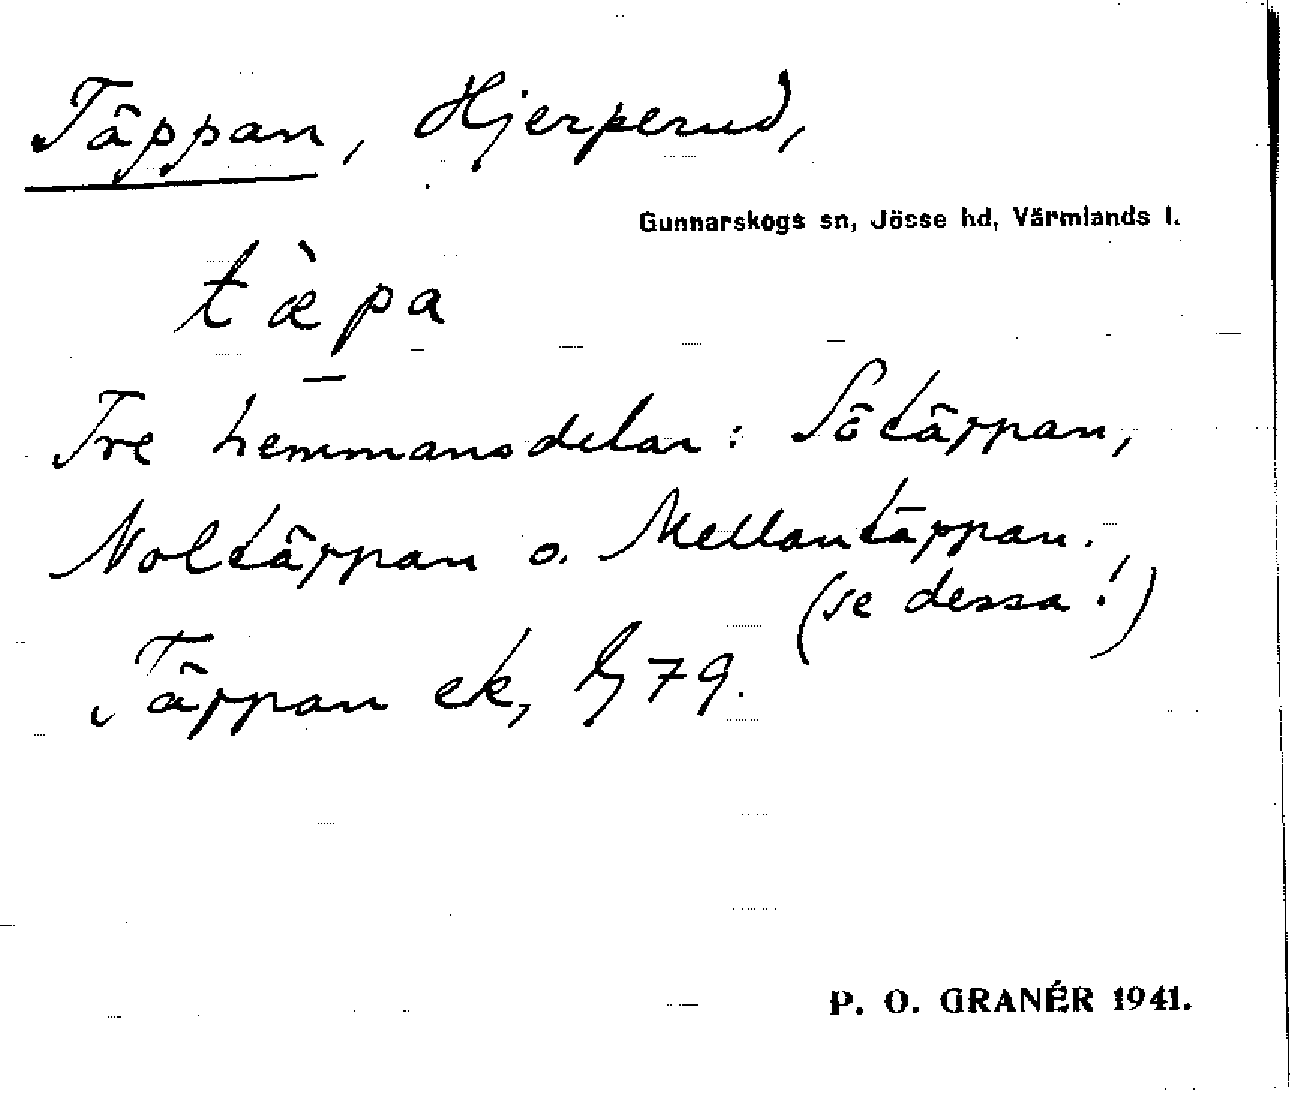 Täppan, Hjerperud,
Gunnarskogs sn, Jösse hd, Värmlands l.
tæ̀pa
Tre hemmansdelar: Sötäppan,
Noltäppan o. Mellantäppan.
(se dessa!)
Täppan ek, 79.
P. O. GRANÉR 1941.